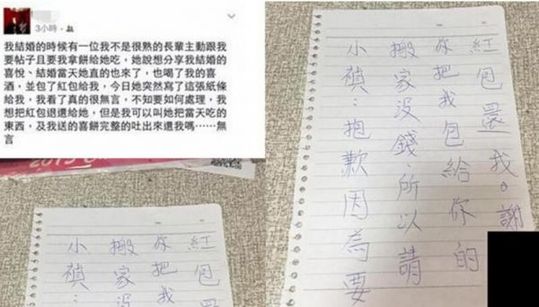 3小時
我結婚的時候有一位我不是很熟的長輩主動跟我
要帖子且要我拿餅給她吃，她說想分享我結婚的
喜悅、結婚當天她直的也來了，也喝了我的喜
酒，並包了紅包給我，今日她突然寫了這張紙條
給我，我看了真的很無言，不知要如何處理，我
想把紅包退還給她，但是我可以叫她把當天吃的
東西，及我送的喜餅完整的吐出來還我嗎……無
言
小禎：
搬家沒
你把我
紅包還
小禎：抱歉因為要
搬家沒錢，所以請
你把我包給你的
紅包還我。謝